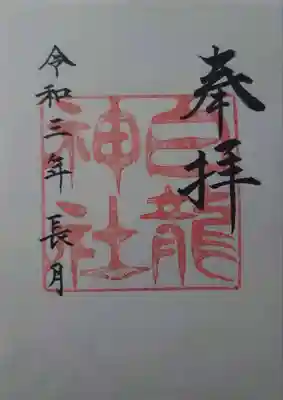 奉拝
白龍
神社
令和三年 長月